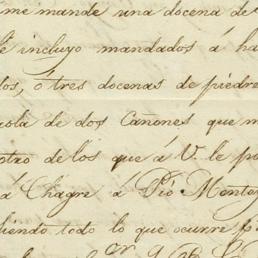 me mande una docena de
é incluyo mandados á ha
dos, ó tres docenas de piedre
ola de dos Cañones que m
otro de los que á V. le po
á Chagre á Pio Monte
diendo todo lo que ocurre p